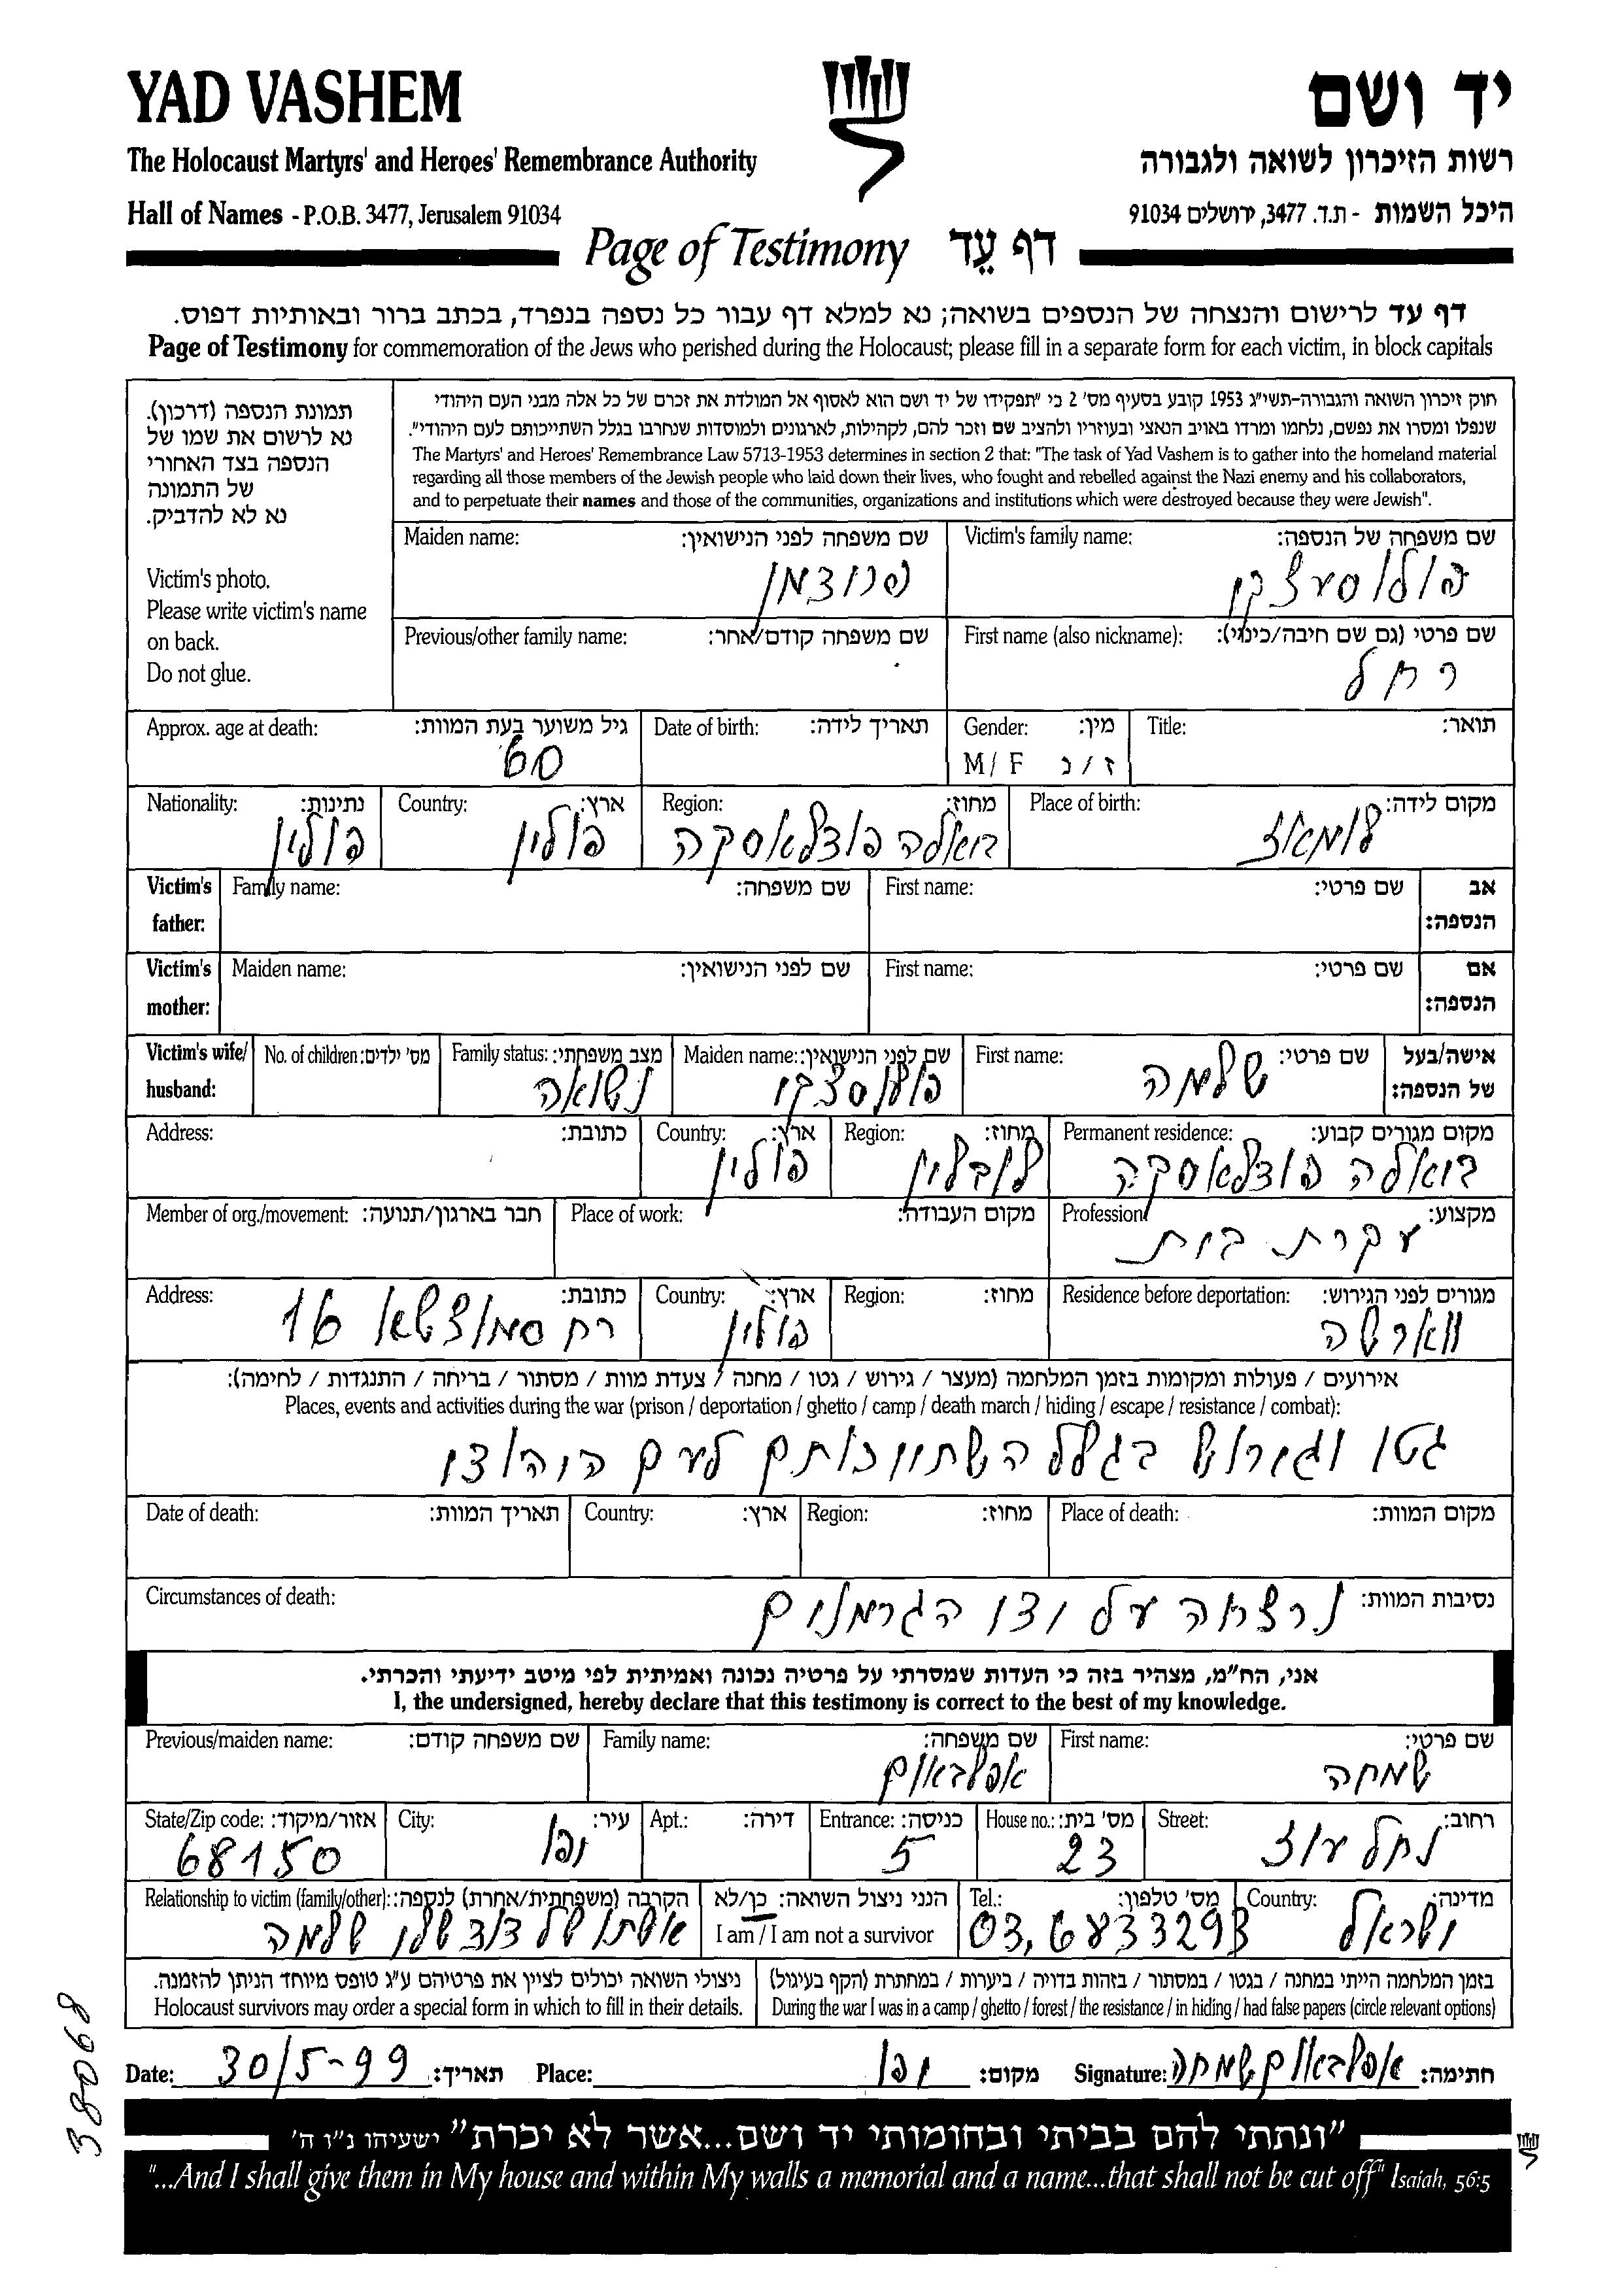 YAD VASHEM
יד ושם
The Holocaust Martyrs' and Heroes' Remembrance Authority
רשות הזיכרון לשואה ולגבורה
Hall of Names - P.O.B. 3477, Jerusalem 91034
היכל השמות - ת.ד. 3477, ירושלים 91034
Page of Testimony דף עֵד
דף עד לרישום והנצחה של הנספים בשואה; נא למלא דף עבור כל נספה בנפרד, בכתב ברור ובאותיות דפוס.
Page of Testimony for commemoration of the Jews who perished during the Holocaust; please fill in a separate form for each victim, in block capitals
תמונת הנספה (דרכון).
נא לרשום את שמו של
הנספה בצד האחורי
של התמונה
נא לא להדביק.
Victim's photo.
Please write victim's name
on back.
Do not glue.
חוק זיכרון השואה והגבורה-תשי"ג 1953 קובע בסעיף מס' 2 כי "תפקידו של יד ושם הוא לאסוף אל המולדת את זכרם של כל אלה מבני העם היהודי
שנפלו ומסרו את נפשם, נלחמו ומרדו באויב הנאצי ובעוזריו ולהציב שם וזכר להם, לקהילות, לארגונים ולמוסדות שנחרבו בגלל השתייכותם לעם היהודי".
The Martyrs' and Heroes' Remembrance Law 5713-1953 determines in section 2 that: "The task of Yad Vashem is to gather into the homeland material
regarding all those members of the Jewish people who laid down their lives, who fought and rebelled against the Nazi enemy and his collaborators,
and to perpetuate their names and those of the communities, organizations and institutions which were destroyed because they were Jewish".
Victim's family name: שם משפחה של הנספה:
Maiden name: שם משפחה לפני הנישואין:
First name (also nickname): שם פרטי (גם שם חיבה/כינוי):
רחל
Previous/other family name: שם משפחה קודם/אחר:
Title: תואר:
Gender: מין:
M / F ז / נ
Date of birth: תאריך לידה:
Approx. age at death: גיל משוער בעת המוות:
60
Place of birth: מקום לידה:
לומאז
Region: מחוז:
ביאלה פודלאסקה
Country: ארץ:
פולין
Nationality: נתינות:
פולין
Victim's father: אב הנספה:
First name: שם פרטי:
Family name: שם משפחה:
Victim's mother: אם הנספה:
First name: שם פרטי:
Maiden name: שם לפני הנישואין:
Victim's wife/ husband: אישה/בעל של הנספה:
First name: שם פרטי:
שלמה
Maiden name: שם לפני הנישואין:
Family status: מצב משפחתי:
נשואה
No. of children: מס' ילדים:
Permanent residence: מקום מגורים קבוע:
ביאלה פודלאסקה
Region: מחוז:
לובלין
Country: ארץ:
פולין
Address: כתובת:
Profession: מקצוע:
עקרת בית
Place of work: מקום העבודה:
Member of org./movement: חבר בארגון/תנועה:
Residence before deportation: מגורים לפני הגירוש:
ווארשה
Region: מחוז:
Country: ארץ:
פולין
Address: כתובת:
רח 16
אירועים / פעולות ומקומות בזמן המלחמה (מעצר / גירוש / גטו / מחנה / צעדת מוות / מסתור / בריחה / התנגדות / לחימה):
Places, events and activities during the war (prison / deportation / ghetto / camp / death march / hiding / escape / resistance / combat):
גטו וגירוש בגלל השתויכותם לעם היהודי
Place of death: מקום המוות:
Region: מחוז:
Country: ארץ:
Date of death: תאריך המוות:
Circumstances of death: נסיבות המוות:
נרצחה על ידי הגרמנים
אני, הח"מ, מצהיר בזה כי העדות שמסרתי על פרטיה נכונה ואמיתית לפי מיטב ידיעתי והכרתי.
I, the undersigned, hereby declare that this testimony is correct to the best of my knowledge.
First name: שם פרטי:
שמחה
Family name: שם משפחה:
אפלבאום
Previous/maiden name: שם משפחה קודם:
Street: רחוב:
נחל עוז
House no.: מס' בית:
23
Entrance: כניסה:
5
Apt.: דירה:
City: עיר:
יפו
State/Zip code: אזור/מיקוד:
68150
Country: מדינה:
ישראל
Tel.: מס' טלפון:
03.6833293
הנני ניצול השואה: כן/לא
I am / I am not a survivor
Relationship to victim (family/other): הקרבה (משפחתית/אחרת) לנספה:
אשתו של דוד שלי שלמה
בזמן המלחמה הייתי במחנה / בגטו / במסתור / בזהות בדויה / ביערות / במחתרת (הקף בעיגול)
During the war I was in a camp / ghetto / forest / the resistance / in hiding / had false papers (circle relevant options)
ניצולי השואה יכולים לציין את פרטיהם ע"ג טופס מיוחד הניתן להזמנה.
Holocaust survivors may order a special form in which to fill in their details.
Date: 30/5-99 תאריך: Place: יפו מקום: Signature: אפלבאום שמחה חתימה:
38068
"ונתתי להם בביתי ובחומותי יד ושם...אשר לא יכרת" ישעיהו נ"ו ה'
"...And I shall give them in My house and within My walls a memorial and a name...that shall not be cut off" Isaiah, 56:5